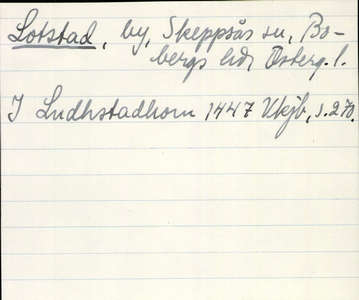 Lotstad, by, Skeppsås sn, Bo-
bergs hd, Österg. l.
I Ludhstadhom 1447 Vkjb, s. 270.